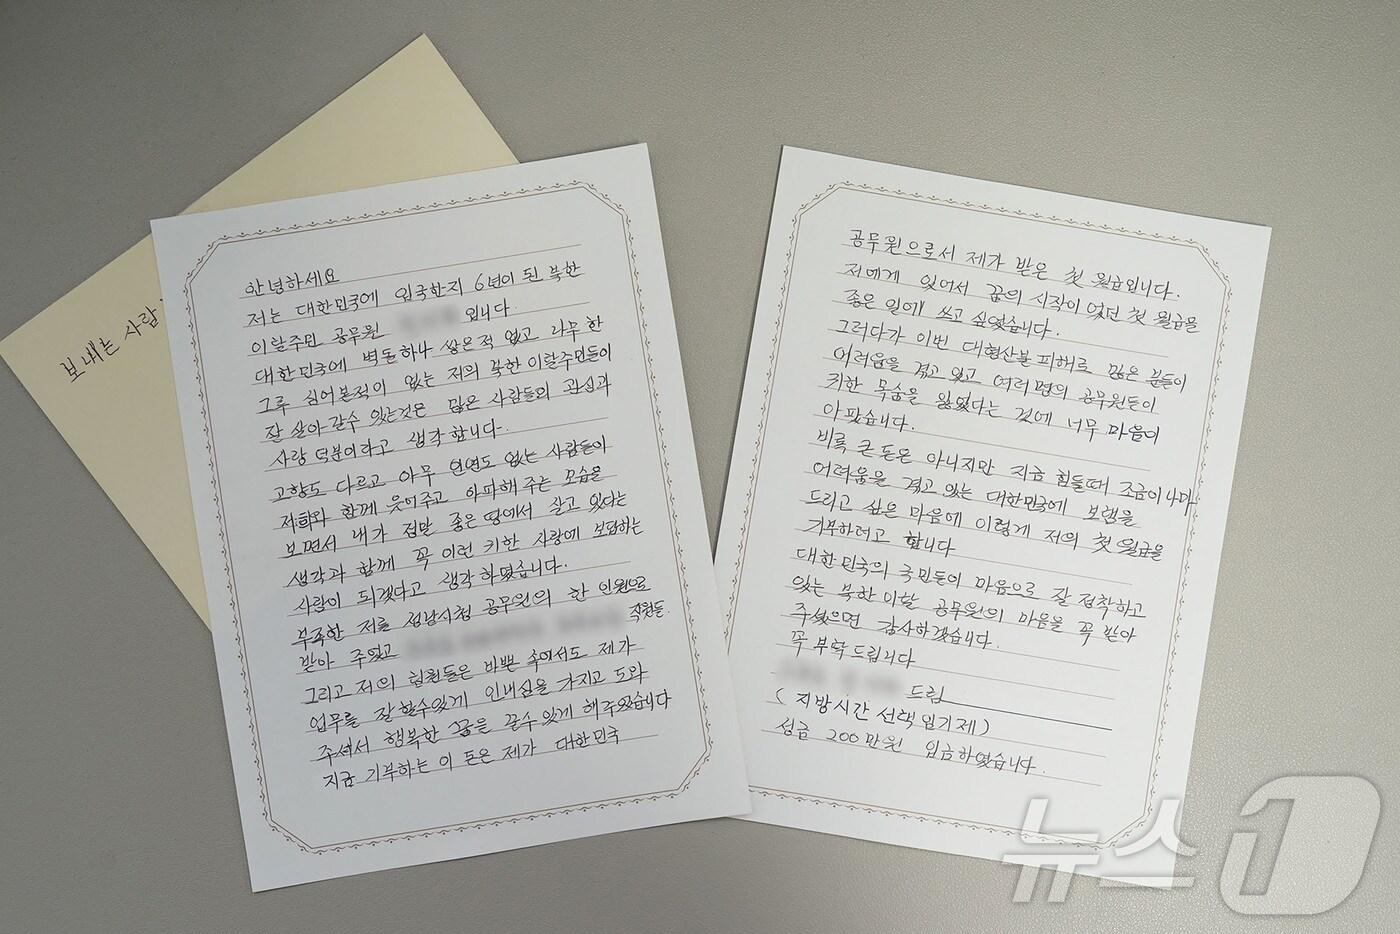 보내는 사람:
안녕하세요
저는 대한민국에 입국한지 6년이 된 북한
이탈주민 공무원 입니다
대한민국에 벽돌하나 쌓은적 없고 나무 한
그루 심어본적이 없는 저의 북한이탈주민들이
잘 살아갈수 있는것은 많은 사람들의 관심과
사랑 덕분이라고 생각합니다.
고향도 다르고 아무 인연도 없는 사람들이
저희와 함께 웃어주고 아파해 주는 모습을
보면서 내가 정말 좋은 땅에서 살고 있다는
생각과 함께 꼭 이런 귀한 사랑에 보답하는
사람이 되겠다고 생각하였습니다.
부족한 저를 성남시청 공무원의 한 인원으로
받아 주었고 직원들.
그리고 저의 팀원들은 바쁜 속에서도 제가
업무를 잘 할수있게 인내심을 가지고 도와
주셔서 행복한 꿈을 꿀수있게 해주었습니다
지금 기부하는 이 돈은 제가 대한민국
공무원으로서 제가 받은 첫 월급입니다.
저에게 있어서 꿈의 시작이 였던 첫 월급을
좋은 일에 쓰고 싶었습니다.
그러다가 이번 대형산불 피해로 많은 분들이
어려움을 겪고 있고 여러명의 공무원들이
귀한 목숨을 잃었다는 것에 너무 마음이
아팠습니다.
비록 큰 돈은 아니지만 지금 힘들때 조금이나마
어려움을 겪고 있는 대한민국에 보탬을
드리고 싶은 마음에 이렇게 저의 첫 월급을
기부하려고 합니다
대한민국의 국민들이 마음으로 잘 정착하고
있는 북한이탈 공무원의 마음을 꼭 받아
주셨으면 감사하겠습니다.
꼭 부탁드립니다
드림
(지방시간 선택 임기제)
성금 200만원 입금하였습니다.
뉴스1